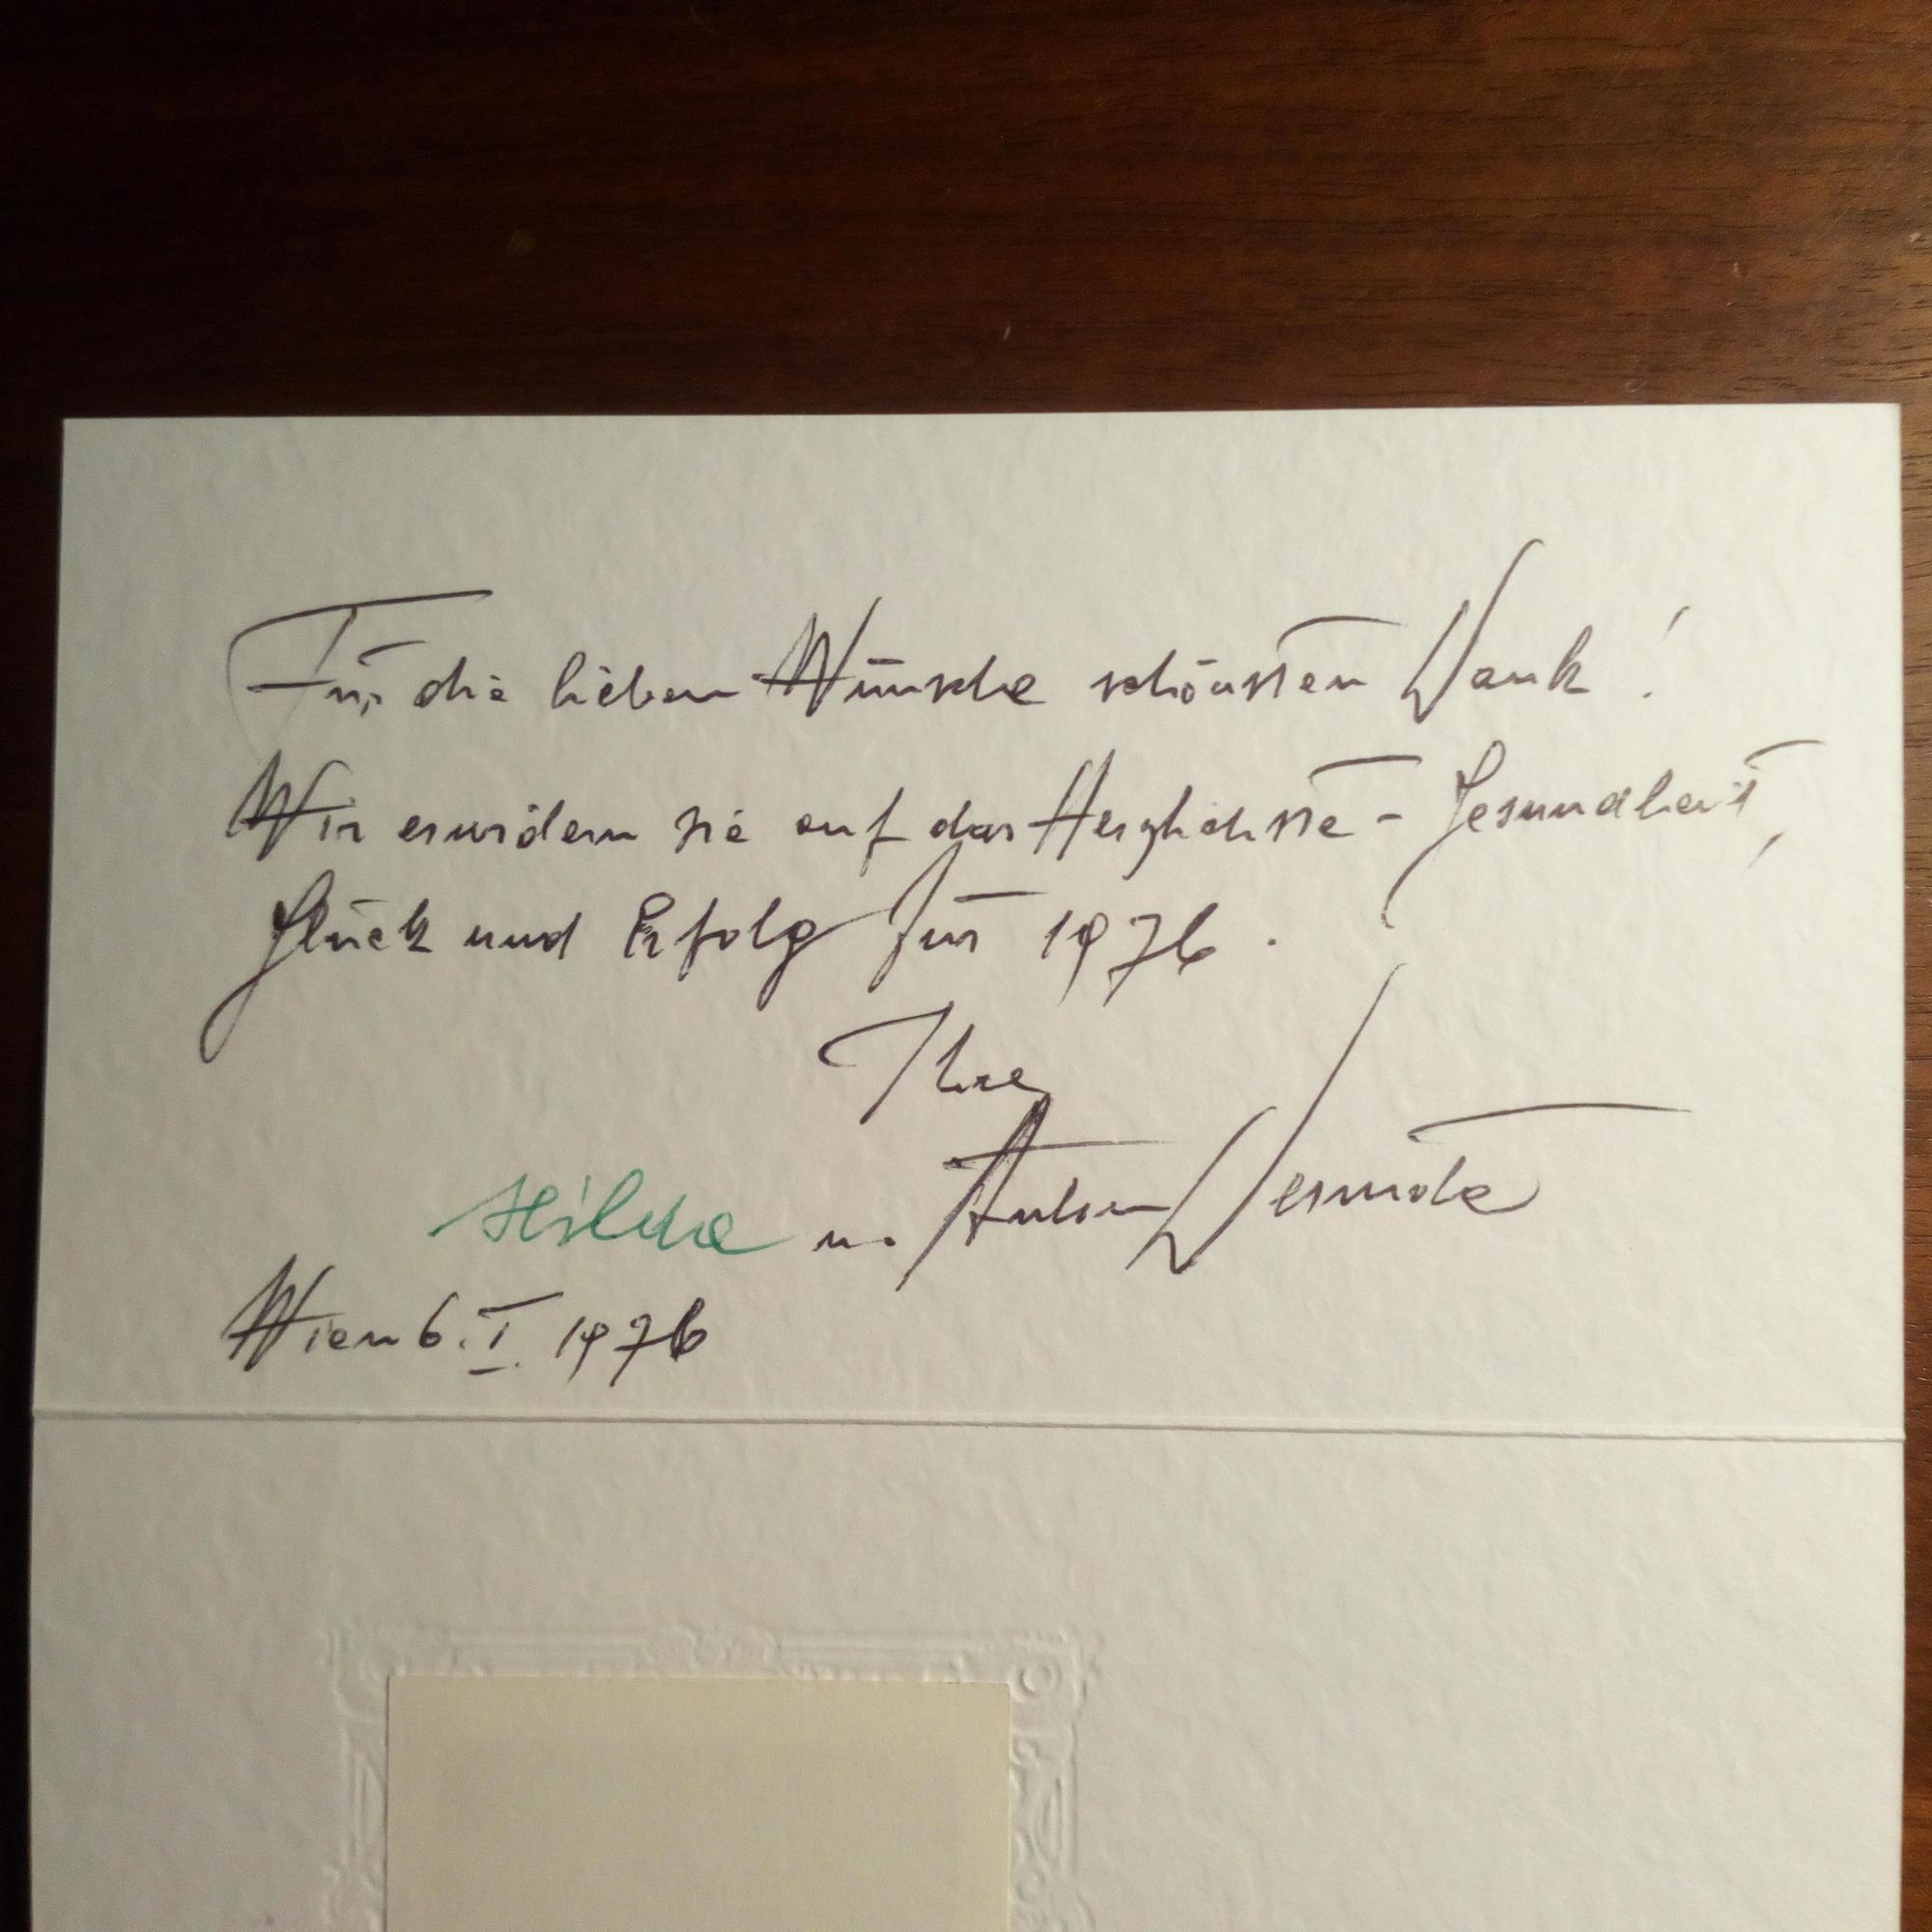 Für die lieben Wünsche schönsten Dank!
Wir erwidern sie auf das Herzlichste - Gesundheit,
Glück und Erfolg für 1976.
Ihre
Hilde u. Anton Dermota
Wien 6. I. 1976